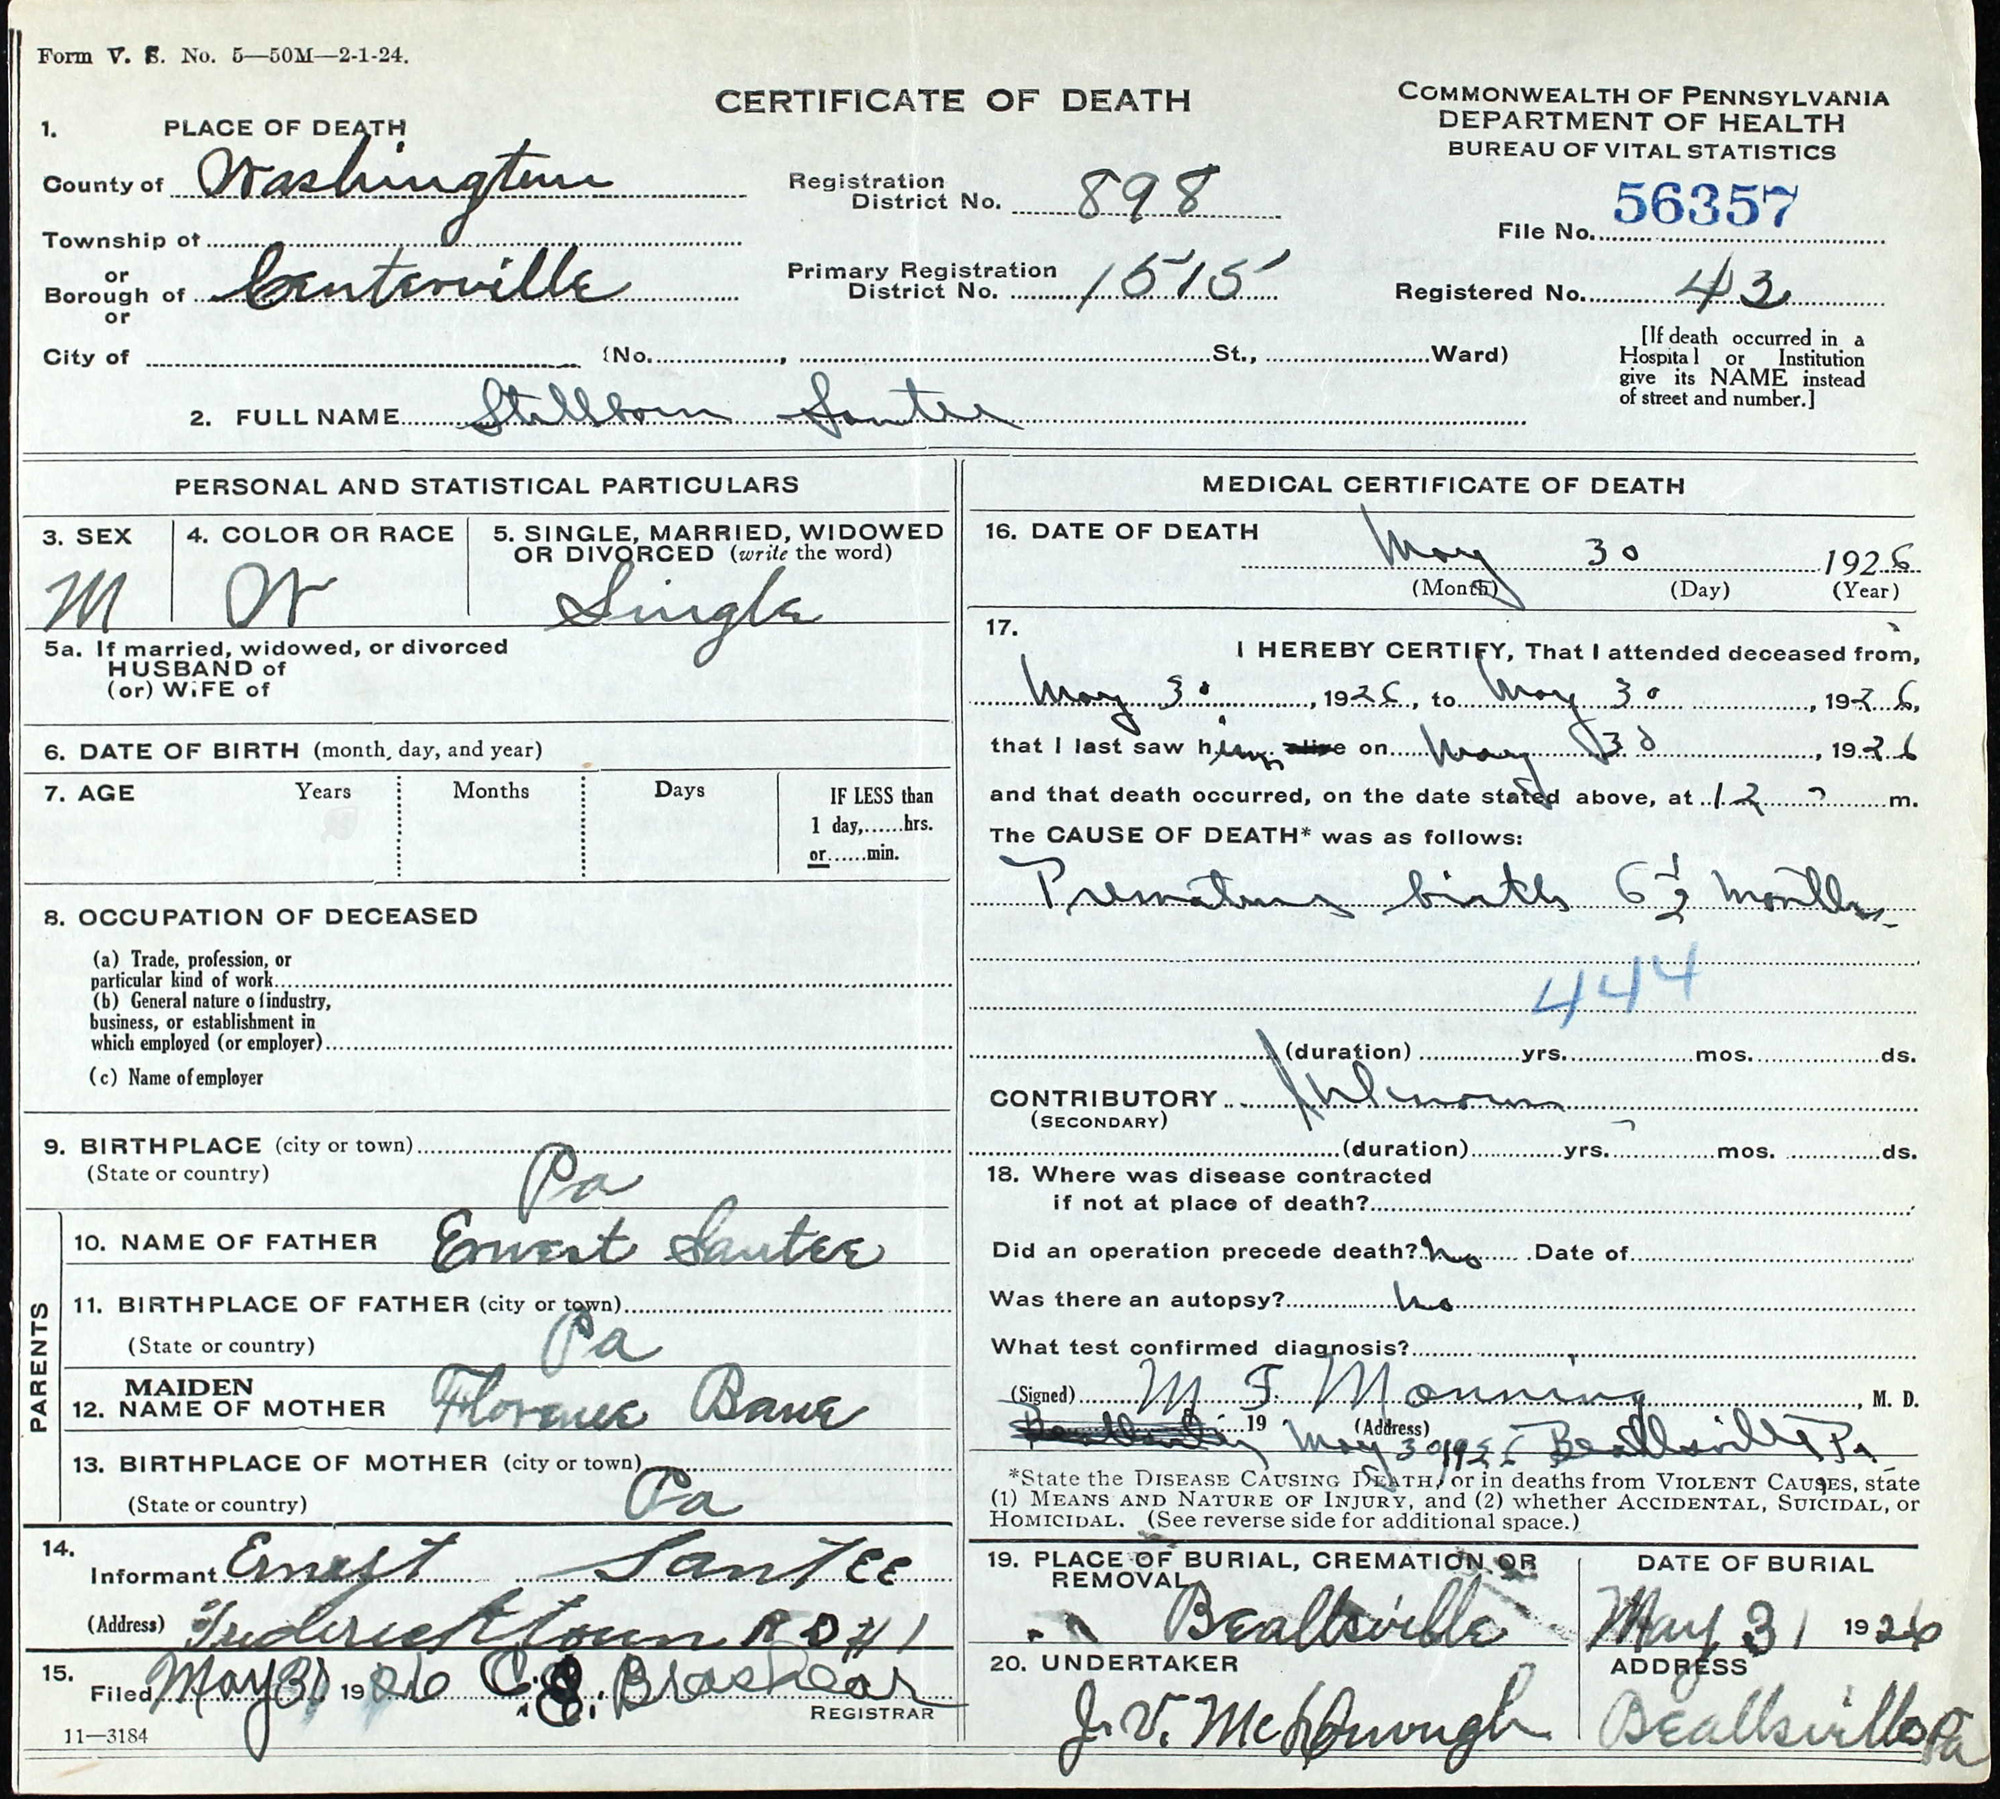 Form V. S. No. 5—50M—2-1-24.
CERTIFICATE OF DEATH
COMMONWEALTH OF PENNSYLVANIA
DEPARTMENT OF HEALTH
BUREAU OF VITAL STATISTICS
1. PLACE OF DEATH
County of Washington
Registration District No. 898
File No. 56357
Township of
or
Borough of Centerville
or
Primary Registration District No. 1515
Registered No. 43
City of (No. , St., Ward)
[If death occurred in a
Hospital or Institution
give its NAME instead
of street and number.]
2. FULL NAME Stillborn Santee
PERSONAL AND STATISTICAL PARTICULARS
3. SEX
M
4. COLOR OR RACE
W
5. SINGLE, MARRIED, WIDOWED
OR DIVORCED (write the word)
Single
5a. If married, widowed, or divorced
HUSBAND of
(or) WIFE of
6. DATE OF BIRTH (month, day, and year)
7. AGE Years Months Days IF LESS than
1 day,......hrs.
or......min.
8. OCCUPATION OF DECEASED
(a) Trade, profession, or
particular kind of work
(b) General nature of industry,
business, or establishment in
which employed (or employer)
(c) Name of employer
9. BIRTHPLACE (city or town)
(State or country) Pa
PARENTS
10. NAME OF FATHER Ernest Santee
11. BIRTHPLACE OF FATHER (city or town)
(State or country) Pa
12. MAIDEN NAME OF MOTHER Florence Bane
13. BIRTHPLACE OF MOTHER (city or town)
(State or country) Pa
14.
Informant Ernest Santee
(Address) Fredericktown R D # 1
15.
Filed May 31 1926 C. E. Brashear
REGISTRAR
11—3184
MEDICAL CERTIFICATE OF DEATH
16. DATE OF DEATH
May 30 1926
(Month) (Day) (Year)
17.
I HEREBY CERTIFY, That I attended deceased from,
May 30, 1926, to May 30, 1926,
that I last saw him alive on May 30, 1926
and that death occurred, on the date stated above, at 12 ? m.
The CAUSE OF DEATH* was as follows:
Premature birth 6 1/2 months
444
(duration) yrs. mos. ds.
CONTRIBUTORY Unknown
(SECONDARY)
(duration) yrs. mos. ds.
18. Where was disease contracted
if not at place of death?
Did an operation precede death? No Date of
Was there an autopsy? No
What test confirmed diagnosis?
(Signed) M. F. Manning, M. D.
19 (Address)
May 30 1926 Beallsville Pa
*State the DISEASE CAUSING DEATH, or in deaths from VIOLENT CAUSES, state
(1) MEANS AND NATURE OF INJURY, and (2) whether ACCIDENTAL, SUICIDAL, or
HOMICIDAL. (See reverse side for additional space.)
19. PLACE OF BURIAL, CREMATION OR
REMOVAL
Beallsville
DATE OF BURIAL
May 31 1926
20. UNDERTAKER
J. V. McDonough
ADDRESS
Beallsville Pa